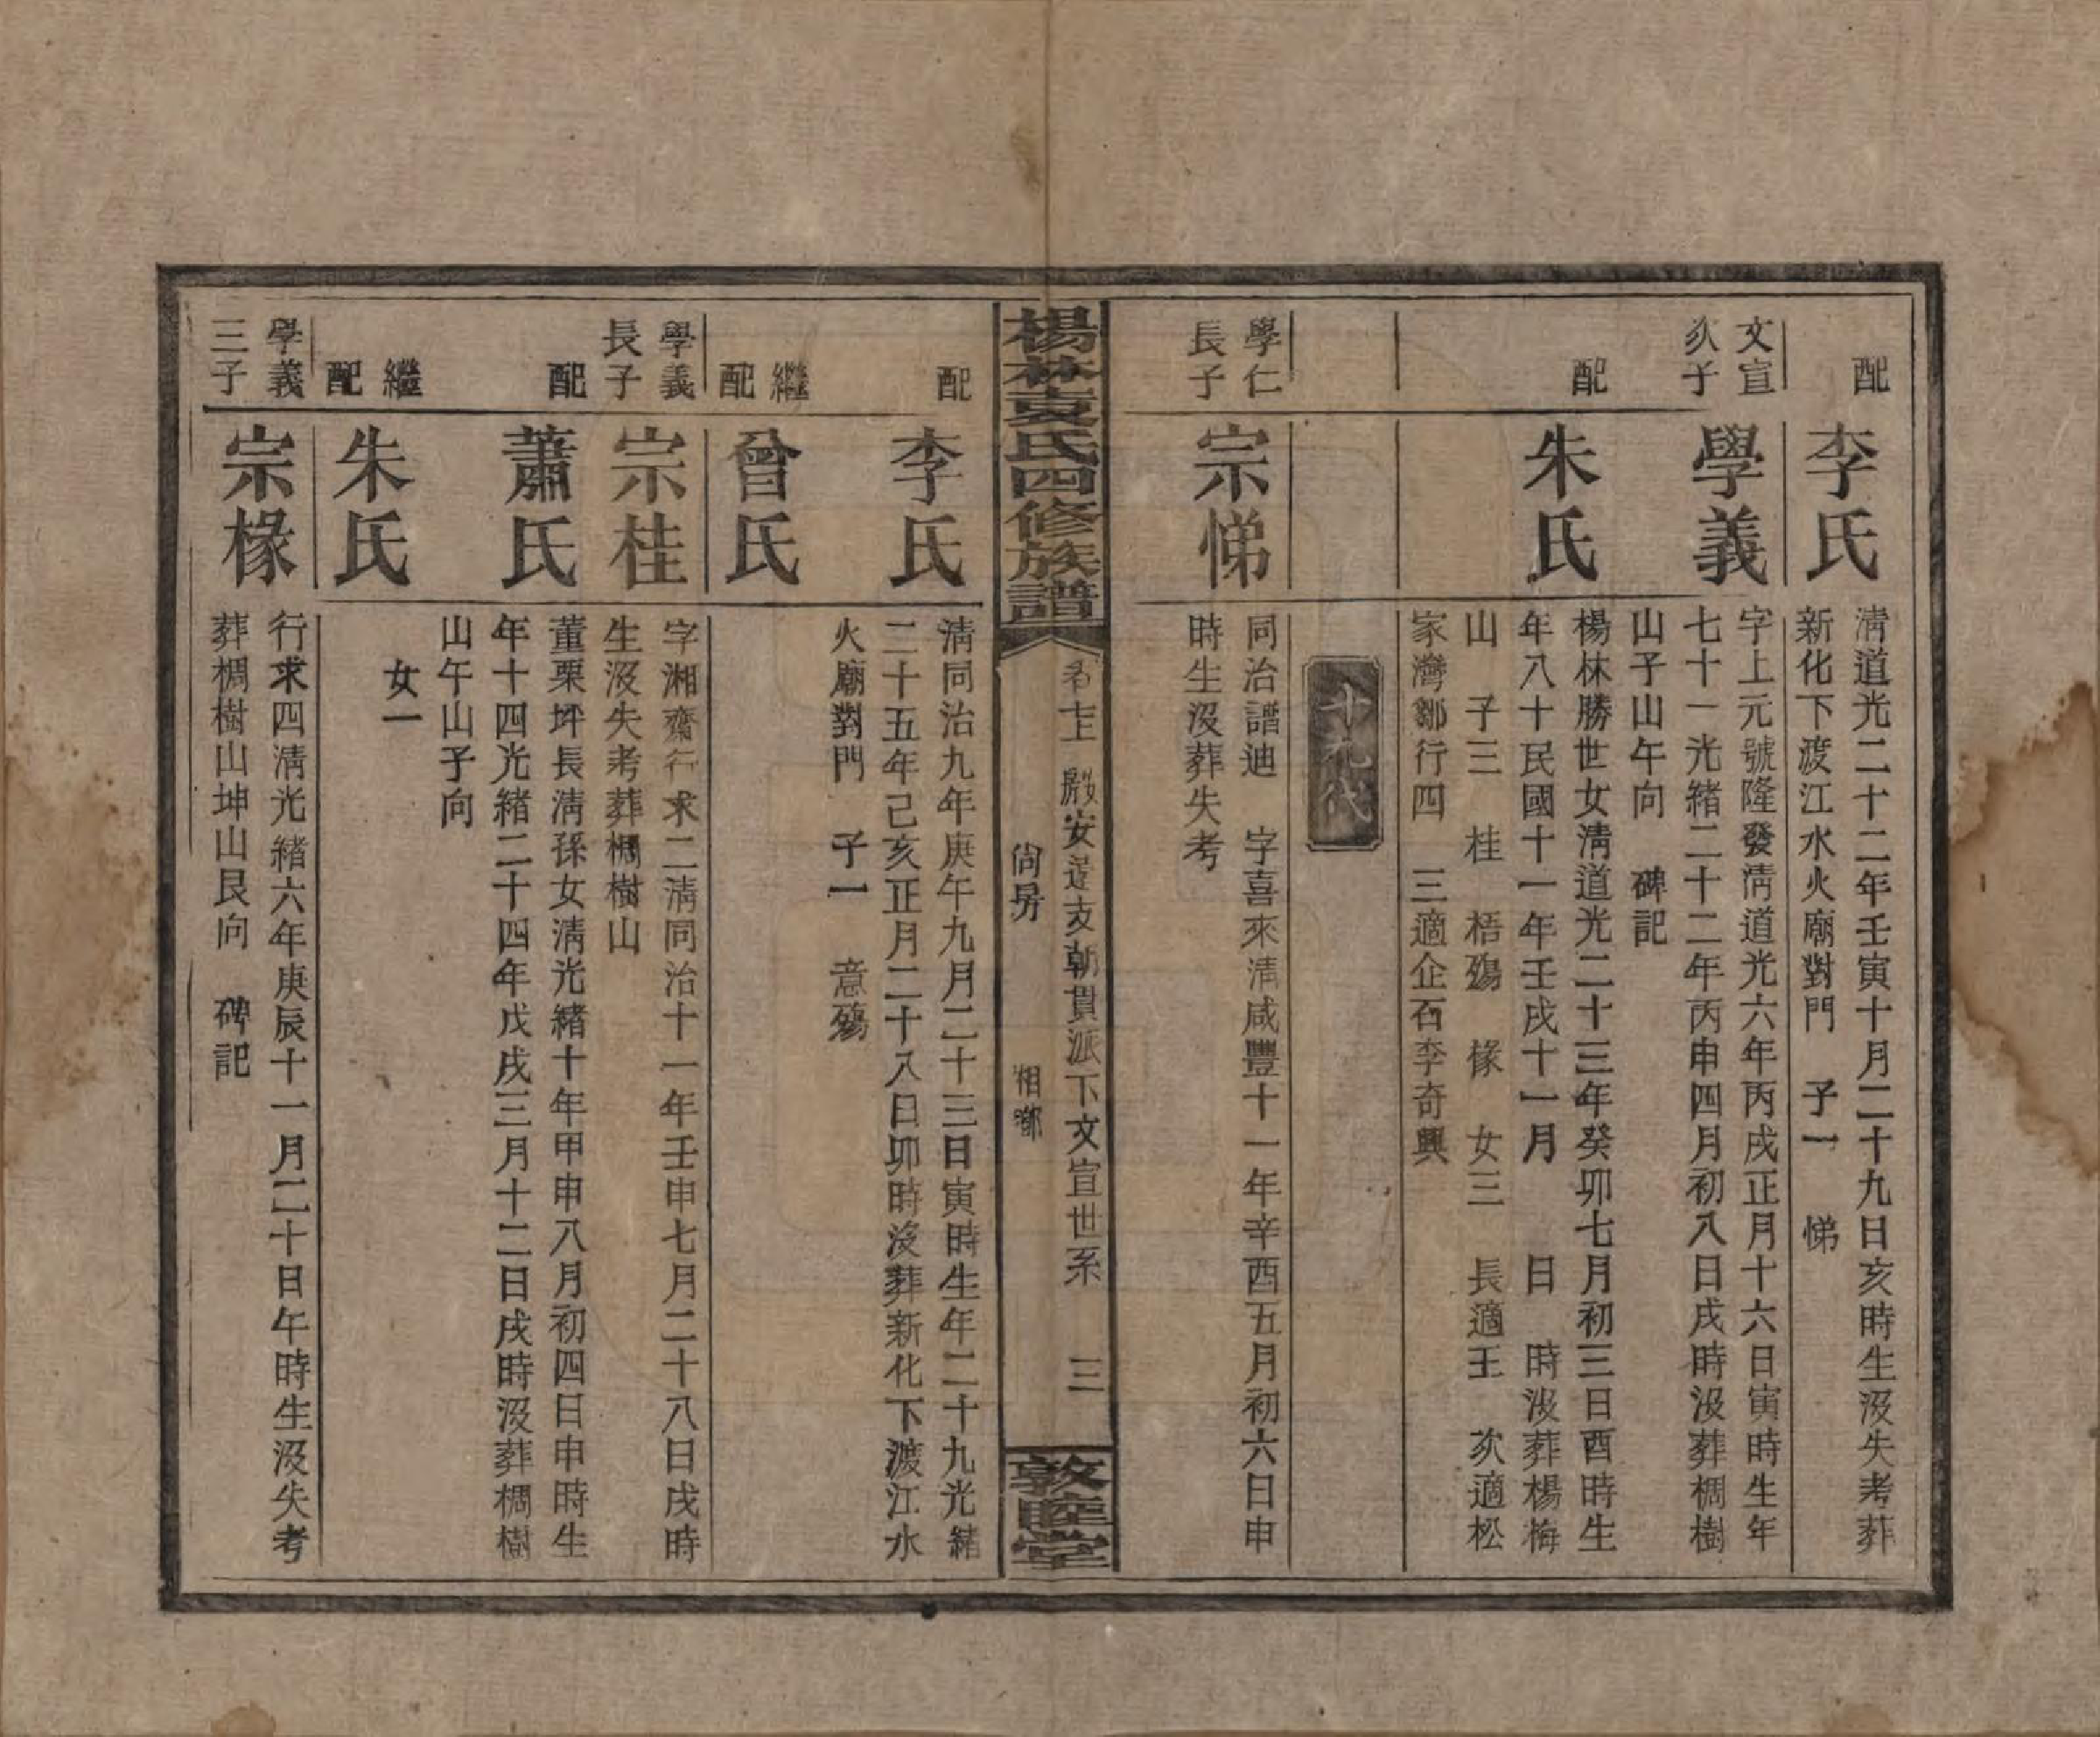 配
李氏
淸道光二十二年壬寅十月二十九日亥時生沒失考葬
新化下渡江水火廟對門　子一　悌
文宣
次子
學義
字上元號隆發淸道光六年丙戌正月十六日寅時生年
七十一光緒二十二年丙申四月初八日戌時沒葬椆樹
山子山午向　碑記
配
朱氏
楊林勝世女淸道光二十三年癸卯七月初三日酉時生
年八十民國十一年壬戌十一月　日　時沒葬楊梅
山　子三　桂　梧殤　椽　女三　長適王　次適松
家灣鄒行四　三適企石李奇興
十九代
學仁
長子
宗悌
同治譜迪　字喜來淸咸豐十一年辛酉五月初六日申
時生沒葬失考
楊林袁氏四修族譜
卷七上　殿安遠支朝貫派下文宣世系　三
尙房
相鄉
敦睦堂
配
李氏
淸同治九年庚午九月二十三日寅時生年二十九光緖
二十五年己亥正月二十八日卯時沒葬新化下渡江水
火廟對門　子一　意殤
繼
配
曾氏
學義
長子
宗桂
字湘齋行求二淸同治十一年壬申七月二十八日戌時
生沒失考葬椆樹山
配
蕭氏
董栗坪長淸孫女淸光緖十年甲申八月初四日申時生
年十四光緒二十四年戊戌三月十二日戌時沒葬椆樹
山午山子向
繼
配
朱氏
女一
學義
三子
宗椽
行求四淸光緒六年庚辰十一月二十日午時生沒失考
葬椆樹山坤山艮向　碑記